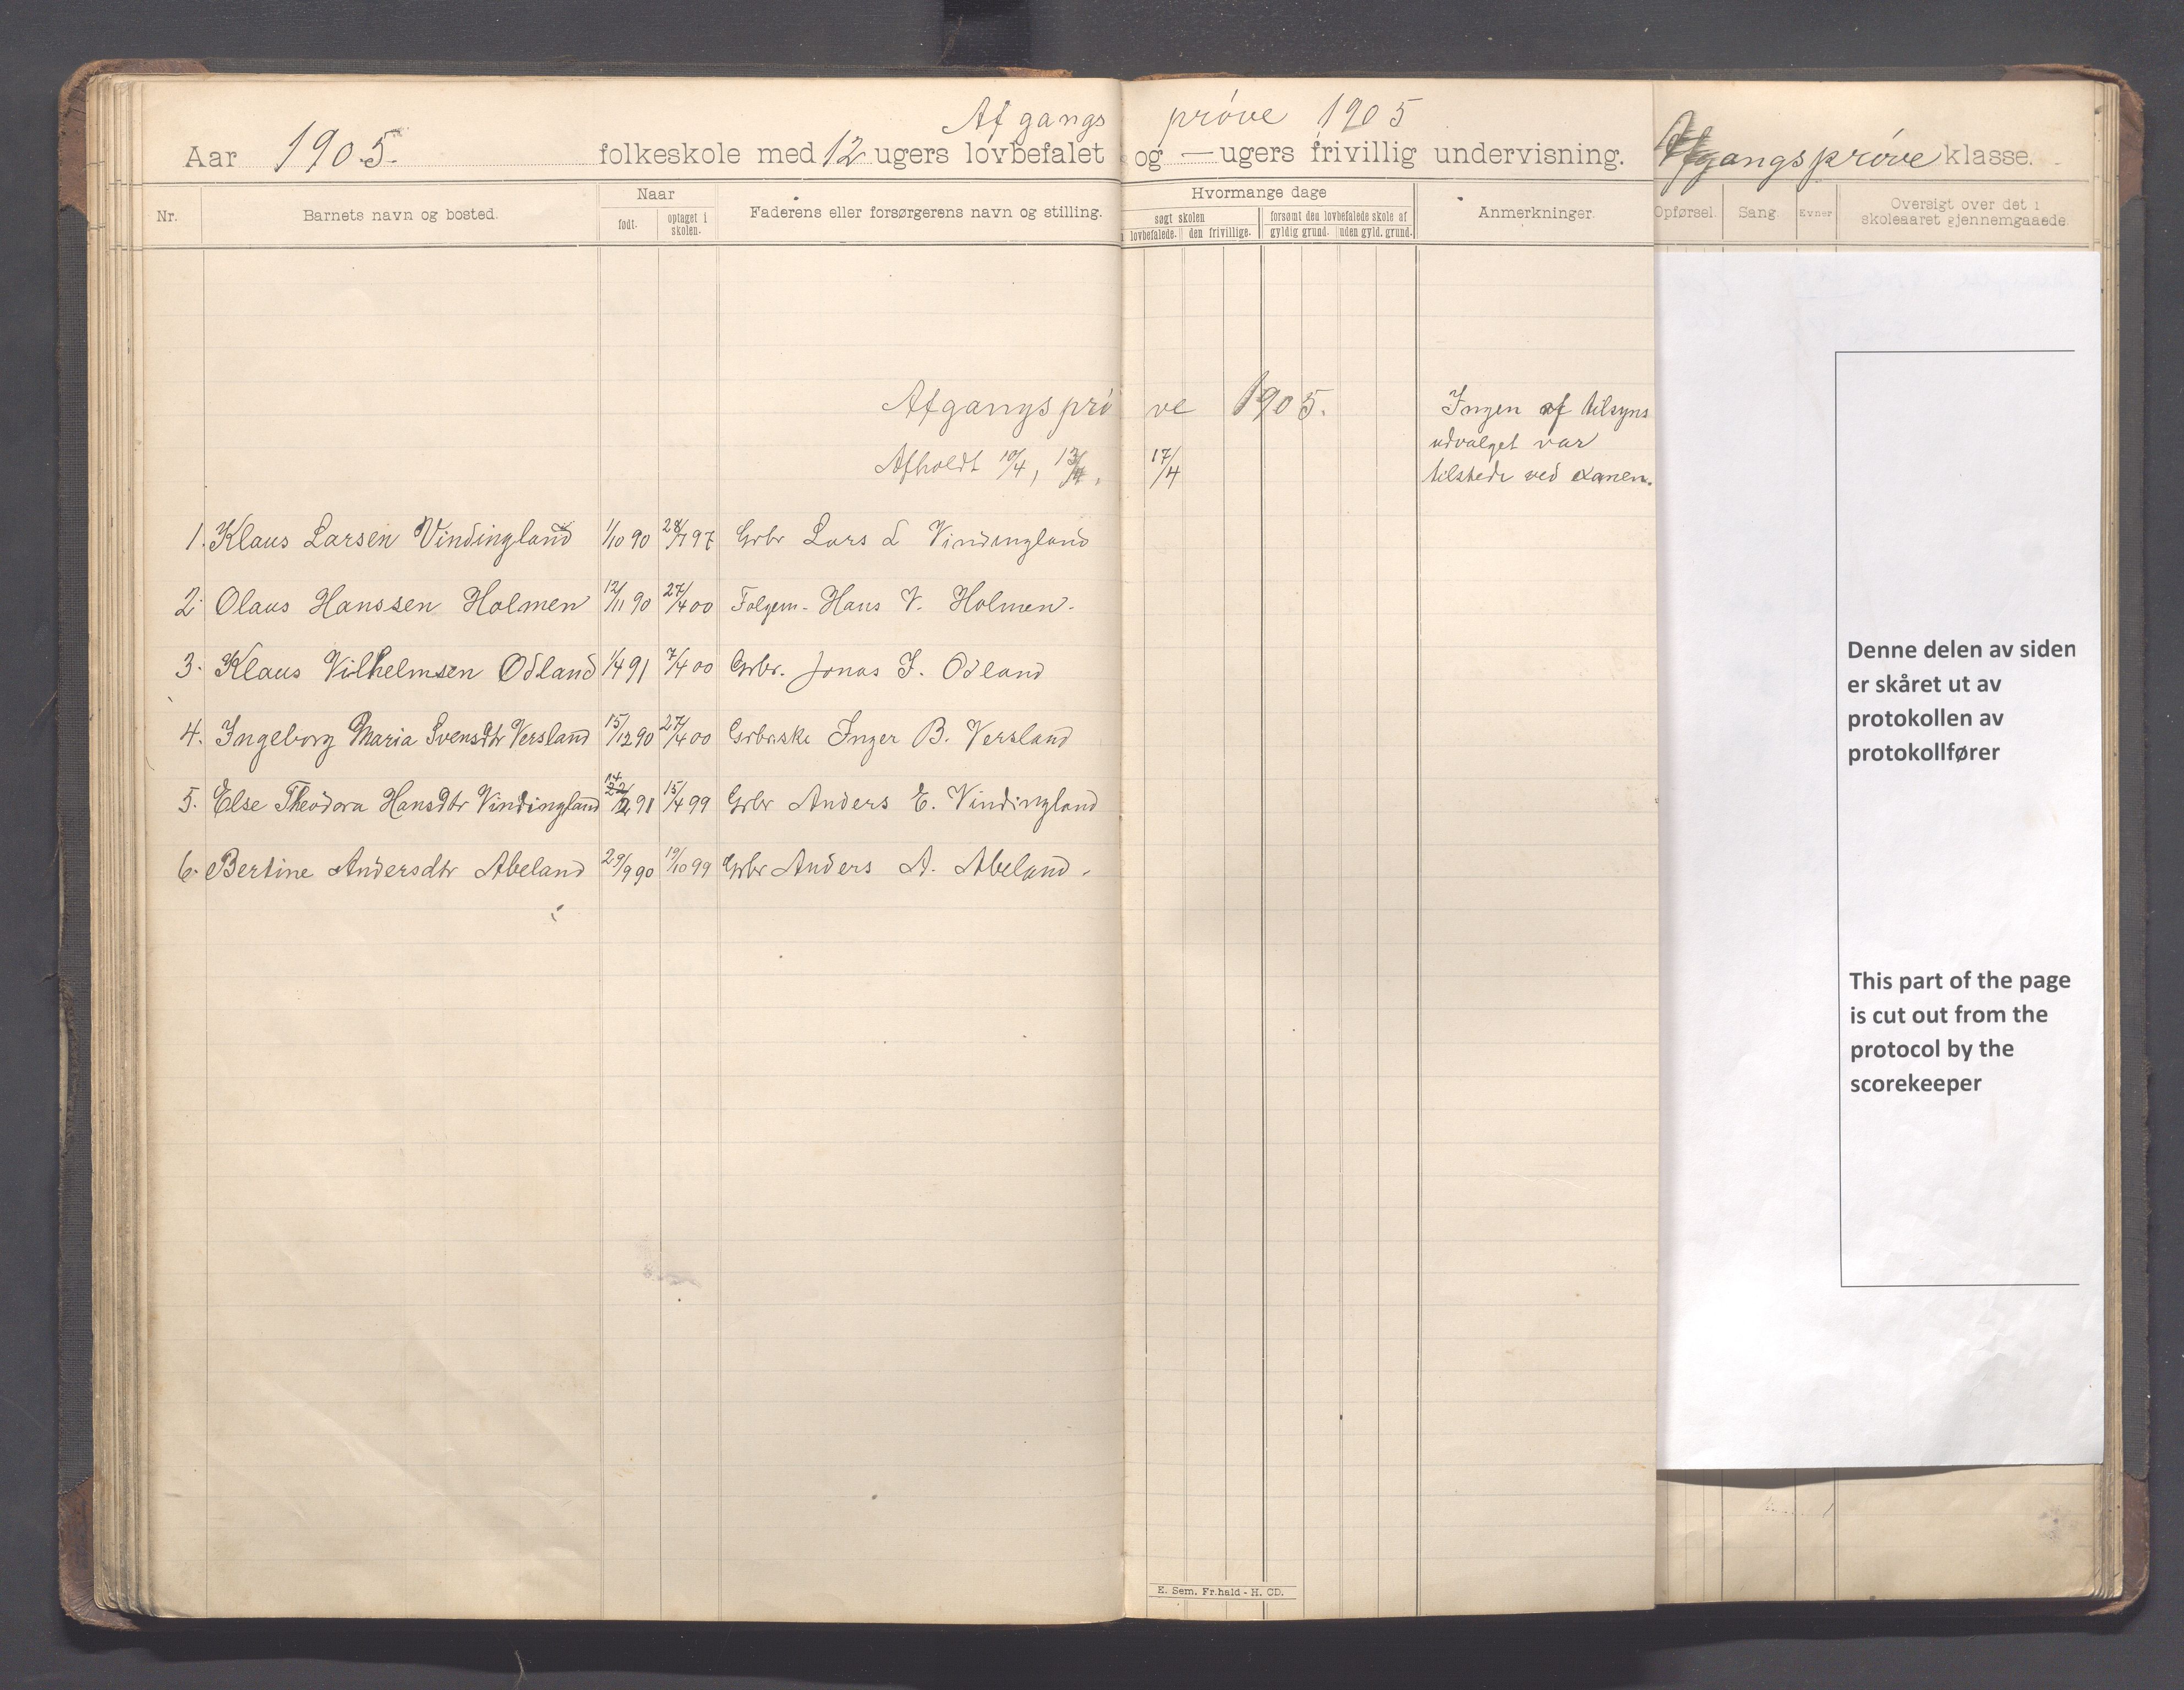 Afgangsprøve 1905
Aar 1905. folkeskole med 12 ugers lovbefalet og — ugers frivillig undervisning. Afgangsprøve klasse.
Nr. Barnets navn og bosted. Naar født. optaget i skolen. Faderens eller forsørgerens navn og stilling. Hvormange dage søgt skolen lovbefalede. den frivillige. forsømt den lovbefalede skole af gyldig grund. uden gyld. grund. Anmerkninger. Opførsel. Sang. Evner Oversigt over det i skoleaaret gjennemgaaede.
Afgangsprøve 1905. Ingen af tilsyns
udvalget var
Afholdt 10/4, 13/4, 17/4 tilstede ved
1. Klaus Larsen Vindingland 1/10 90 28/7 97 Grbr Lars L Vindingland
2. Olaus Hanssen Holmen 12/11 90 27/4 00 Folgem. Hans V. Holmen.
3. Klaus Vilhelmsen Odland 1/4 91 7/4 00 Grbr. Jonas J. Odland
4. Ingeborg Maria Svensdtr Versland 15/12 90 27/4 00 Grbrske Inger B. Versland
5. Else Theodora Hansdtr Vindingland 91 15/4 99 Grbr Anders E. Vindingland
6. Bertine Andersdtr Abeland 29/9 90 19/10 99 Grbr Anders A. Abeland.
Denne delen av siden
er skåret ut av
protokollen av
protokollfører
This part of the page
is cut out from the
protocol by the
scorekeeper
E. Sem. Fr.hald - H. CD.